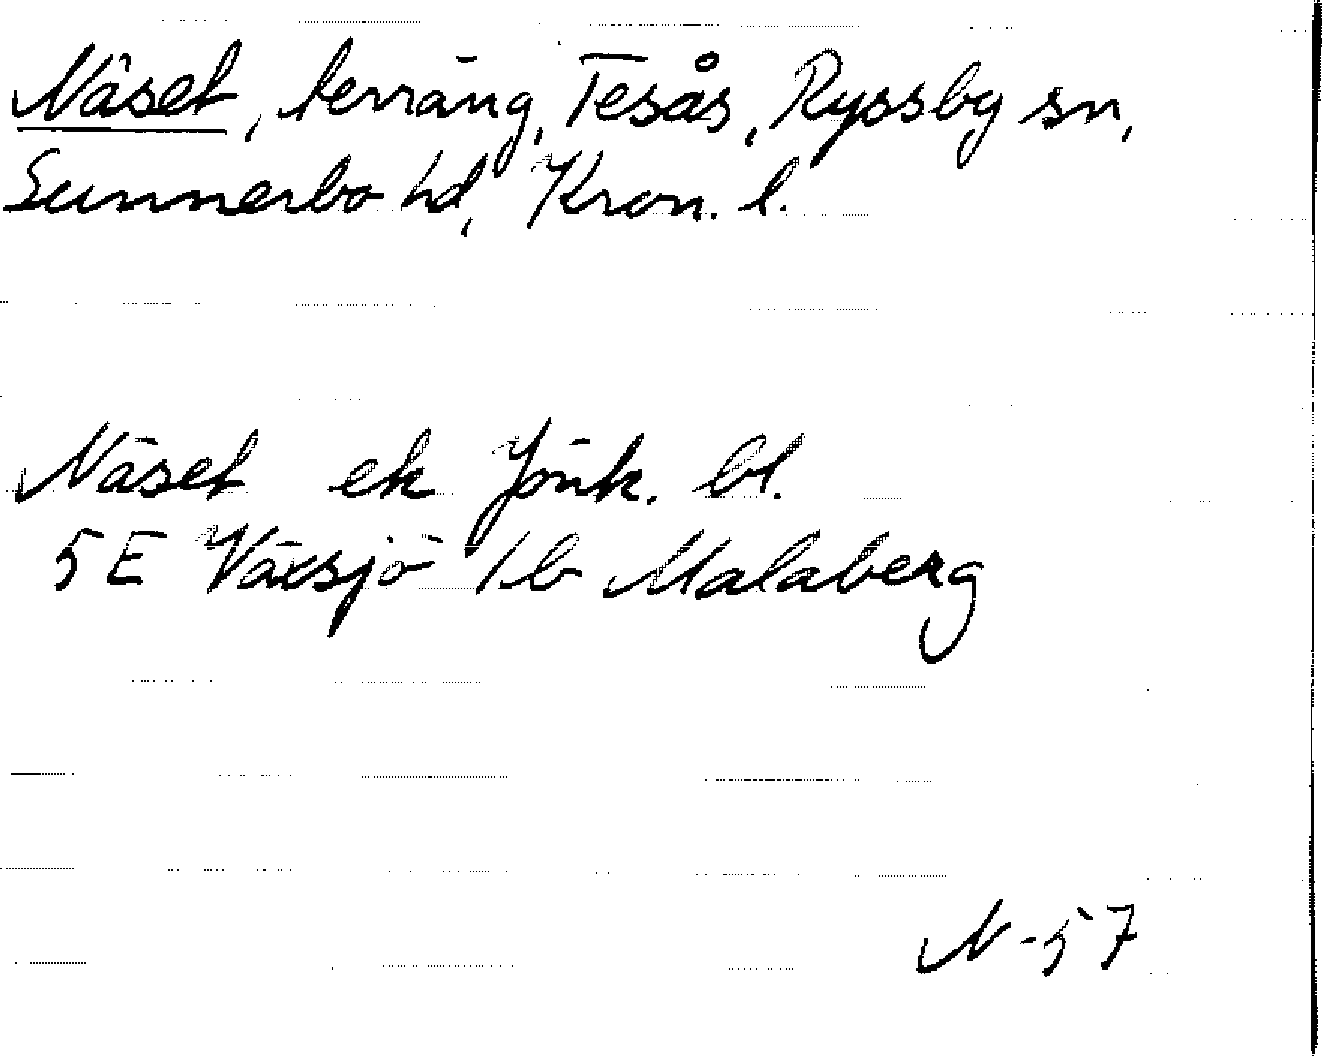 Näset, terräng, Tesås, Ryssby sn,
Sunnerbo hd, Kron. l.
Näset ek Jönk. bl.
5E Växsjö 1b Målaberg
N-57